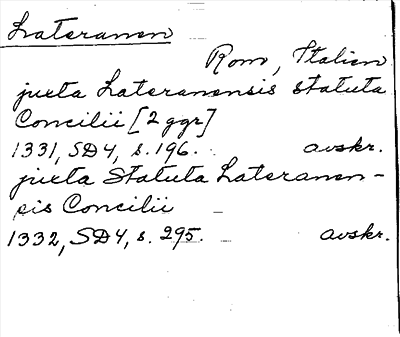 Lateranen
Rom, Italien
juxta Lateranensis statuta
Concilii [2 ggr]
1331, SD4, s. 196. avskr.
juxta Statuta Lateranen-
sis Concilii
1332, SD4, s. 295. avskr.